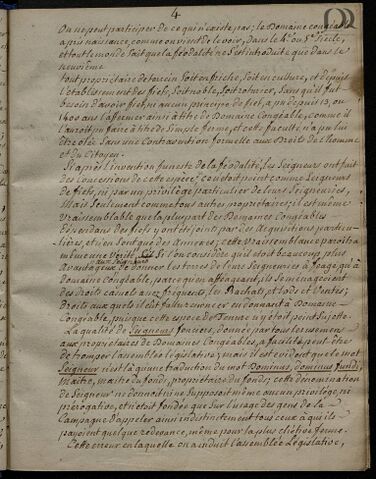 4.
On ne peut participer de ce qui n'existe pas; le Domaine Congéable
a pris naissance, comme on vient de le voir, dans le 4e ou 5e Siècle,
et tout le monde Sait que la féodalité ne S'est introduite que dans le
neuvième
tout propriétaire de terrein Soit en friche, Soit en culture, et depuis
l'établissement des fiefs, Soit noble, Soit roturier, Sans qu'il fut
besoin d'avoir fief, ni aucun principe de fief, a pu depuis 13, ou
1400 ans l'affermer ainsi à titre de Domaine Congéable, comme il
l'auroit pu faire à titre de Simple ferme, et cette faculté n'a pu lui
être ôtée Sans une Contravention formelle aux Droits de l'homme
et du Citoyen.
Si après l'invention funeste de la féodalité, les Seigneurs ont fait
des Concessions de cette espèce, ce n'étoit point comme Seigneurs
de fiefs, ni par un privilège particulier de leurs Seigneuries,
Mais Seulement comme tous autres propriétaires; il est même
vraisemblable que la plus part des Domaines Congéables
dépendans des fiefs y ont été joint par des Acquisitions particu-
lières, et n'en Sont que des Annexes; cette vraisemblance paroîtra
même une Vérité, Si l'on considère qu'il étoit beaucoup plus
aux Seigneurs
avantageux de donner les terres de leurs Seigneuries à féage qu'à
domaine Congéable, parce qu'en afféageant, ils Se ménageoient
des droits casuels avec fréquents, les Rachats, et Lods et Ventes;
Droits aux quels il leur fallut renoncer en donnant à Domaine
Congéable, puisque cette espèce de Tenue n'y étoit point Sujette.
La qualité de Seigneurs fonciers, donnée par tous les usemens
aux propriétaires de Domaines Congéables, a facilité peut-être
de tromper l'assemblée législative; mais il est évident que le mot
Seigneur n'est là qu'une traduction du mot Dominus, dominus fundi,
Maître, maître du fond, propriétaire du fond; cette dénomination
de Seigneur ne donnoit ni ne Supposoit même aucun privilège, ni
prérogative, et n'étoit fondée que Sur l'usage des gens de la
Campagne d'appeler ainsi indistinctement tous ceux à qui ils
payoient quelque redevance, même pour la plus chétive ferme.
Cette erreur en laquelle on a induit l'assemblée Législative,